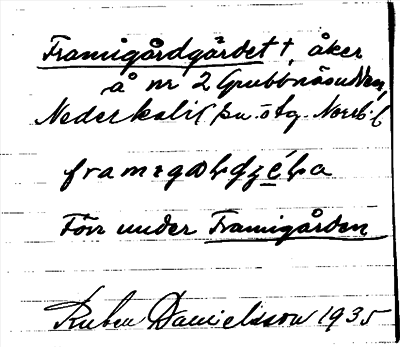 Framigårdgärdet †, åker
å nr 2 Grubbnäsudden,
Nederkalix sn. ö tg. Norrb. l
Förr under Framigården
Ruben Danielsson 1935